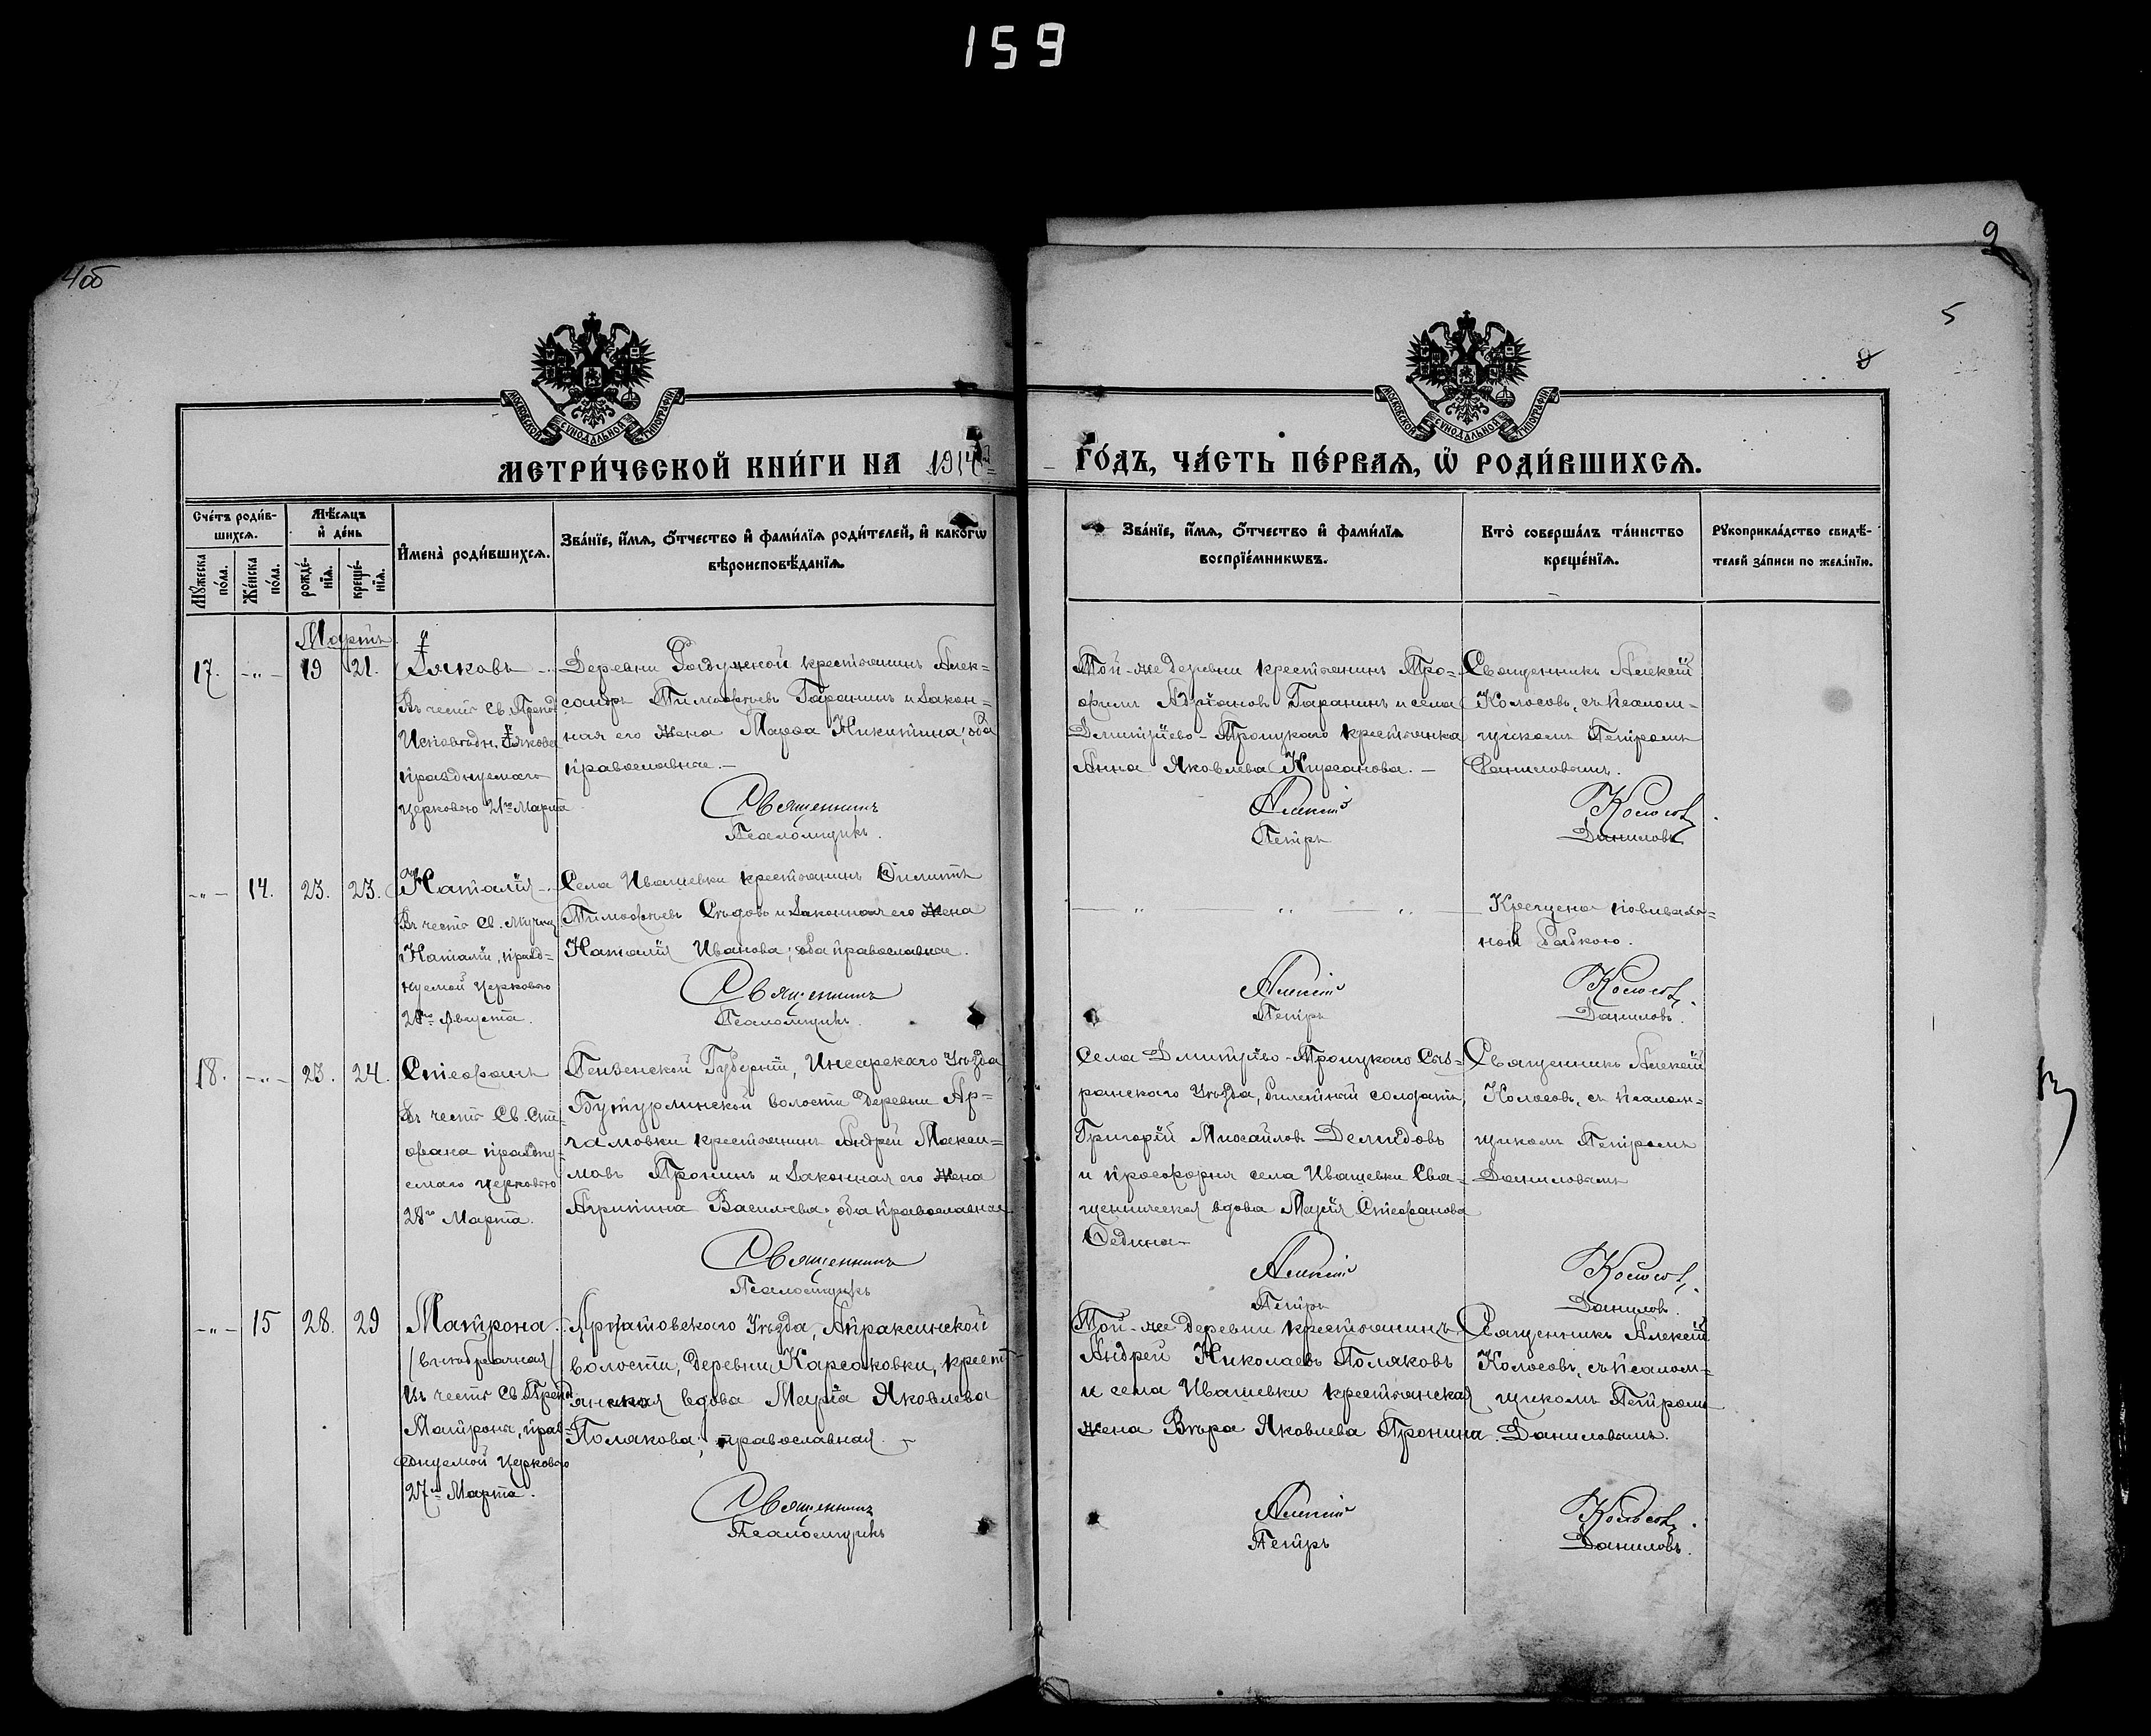 159
4об
9
5
8
МОСКОВСКОЙ СѴНОДАЛЬНОЙ ТИПОГРАФІИ
МОСКОВСКОЙ СѴНОДАЛЬНОЙ ТИПОГРАФІИ
МЕТРИ́ЧЕСКОЙ КНИ́ГИ НА 1914й
ГО́ДЪ, ЧА́СТЬ ПЕ́РВАѦ, Ѡ҆ РОДИ́ВШИХСѦ.
Сче́тъ роди́в-
шихсѧ.
Мꙋ́жеска по́ла.
Же́нска по́ла.
Мѣ́сѧцъ
и҆ де́нь
рожде́-
нїѧ.
креще́-
нїѧ.
И҆мена̀ роди́вшихсѧ.
Зва́нїе, и҆́мѧ, ѻ҆́тчество и҆ фами́лїѧ роди́телей, и҆ како́гѡ
вѣроисповѣ́данїѧ.
Зва́нїе, и҆́мѧ, ѻ҆́тчество и҆ фами́лїѧ
воспрїе́мникѡвъ.
Кто̀ соверша́лъ та́инство
креще́нїѧ.
Рꙋкоприкла́дство свидѣ́-
телей за́писи по жела́нїю.
Мартъ
17. -„- 19 21. Іяковъ
Въ честь Св. Препод.
Исповѣдн. Іякова
празднуемаго
церковью 21го Марта
Деревни крестьянинъ Алек-
сандръ Тимофѣевъ Гаранинъ и закон-
ная его жена Марѳа Никитина; оба
православные.
Священникъ
Псаломщикъ.
Той-же деревни крестьянинъ Тро-
фимъ Адріановъ Гаранинъ и села
Дмитріево-Троицкаго крестьянка
Анна Яковлева Кирсанова.
Алексій
Петръ
Священникъ Алексій
Колосовъ, съ псалом-
щикомъ Петромъ
Даниловымъ.
Колосовъ.
Даниловъ
-„- 14. 23. 23. Наталія
Въ честь Св. Мучен.
Наталіи, празд-
нуемой Церковью
26го Августа.
Села Ивашевки крестьянинъ Филиппъ
Тимофѣевъ Сѣдовъ и законная его жена
Наталія Иванова; оба православные.
Священникъ
Псаломщикъ.
„ „ „
Алексій
Петръ
Крещена повиваль-
ной бабкою.
Колосовъ.
Даниловъ.
18. -„- 23. 24. Стефанъ
Въ честь Св. Сте-
фана праздну-
емаго церковью
28го Марта.
Пензенской Губерніи, Инсарскаго Уѣзда
Бутурлинской волости деревни Ар-
чамовки крестьянинъ Андрей Макси-
мовъ Пронинъ и законная его жена
Агрипина Васильева; оба православные
Священникъ
Псаломщикъ
Села Дмитріево-Троицкаго Сыз-
ранскаго Уѣзда, билетный солдатъ,
Григорій Михайловъ Демидовъ
и просфорня села Ивашевки Свя-
щенническая вдова Марія Стефанова
Федина
Алексій
Петръ
Священникъ Алексій
Колосовъ, съ псалом-
щикомъ Петромъ
Даниловымъ
Колосовъ.
Даниловъ.
-„- 15 28. 29 Матрона
(внѣбрачная)
Въ честь Св. Препод.
Матроны, праз-
днуемой Церковью
27го Марта.
Ардатовскаго Уѣзда, Апраксинской
волости, деревни Карсаковки, крест-
янская вдова Марія Яковлева
Полякова; православная.
Священникъ
Псаломщикъ
Той-же деревни крестьянинъ
Андрей Николаевъ Поляковъ
и села Ивашевки крестьянская
жена Вѣра Яковлева Пронина.
Алексій
Петръ
Священникъ Алексій
Колосовъ, съ псалом-
щикомъ Петромъ
Даниловымъ.
Колосовъ.
Даниловъ.